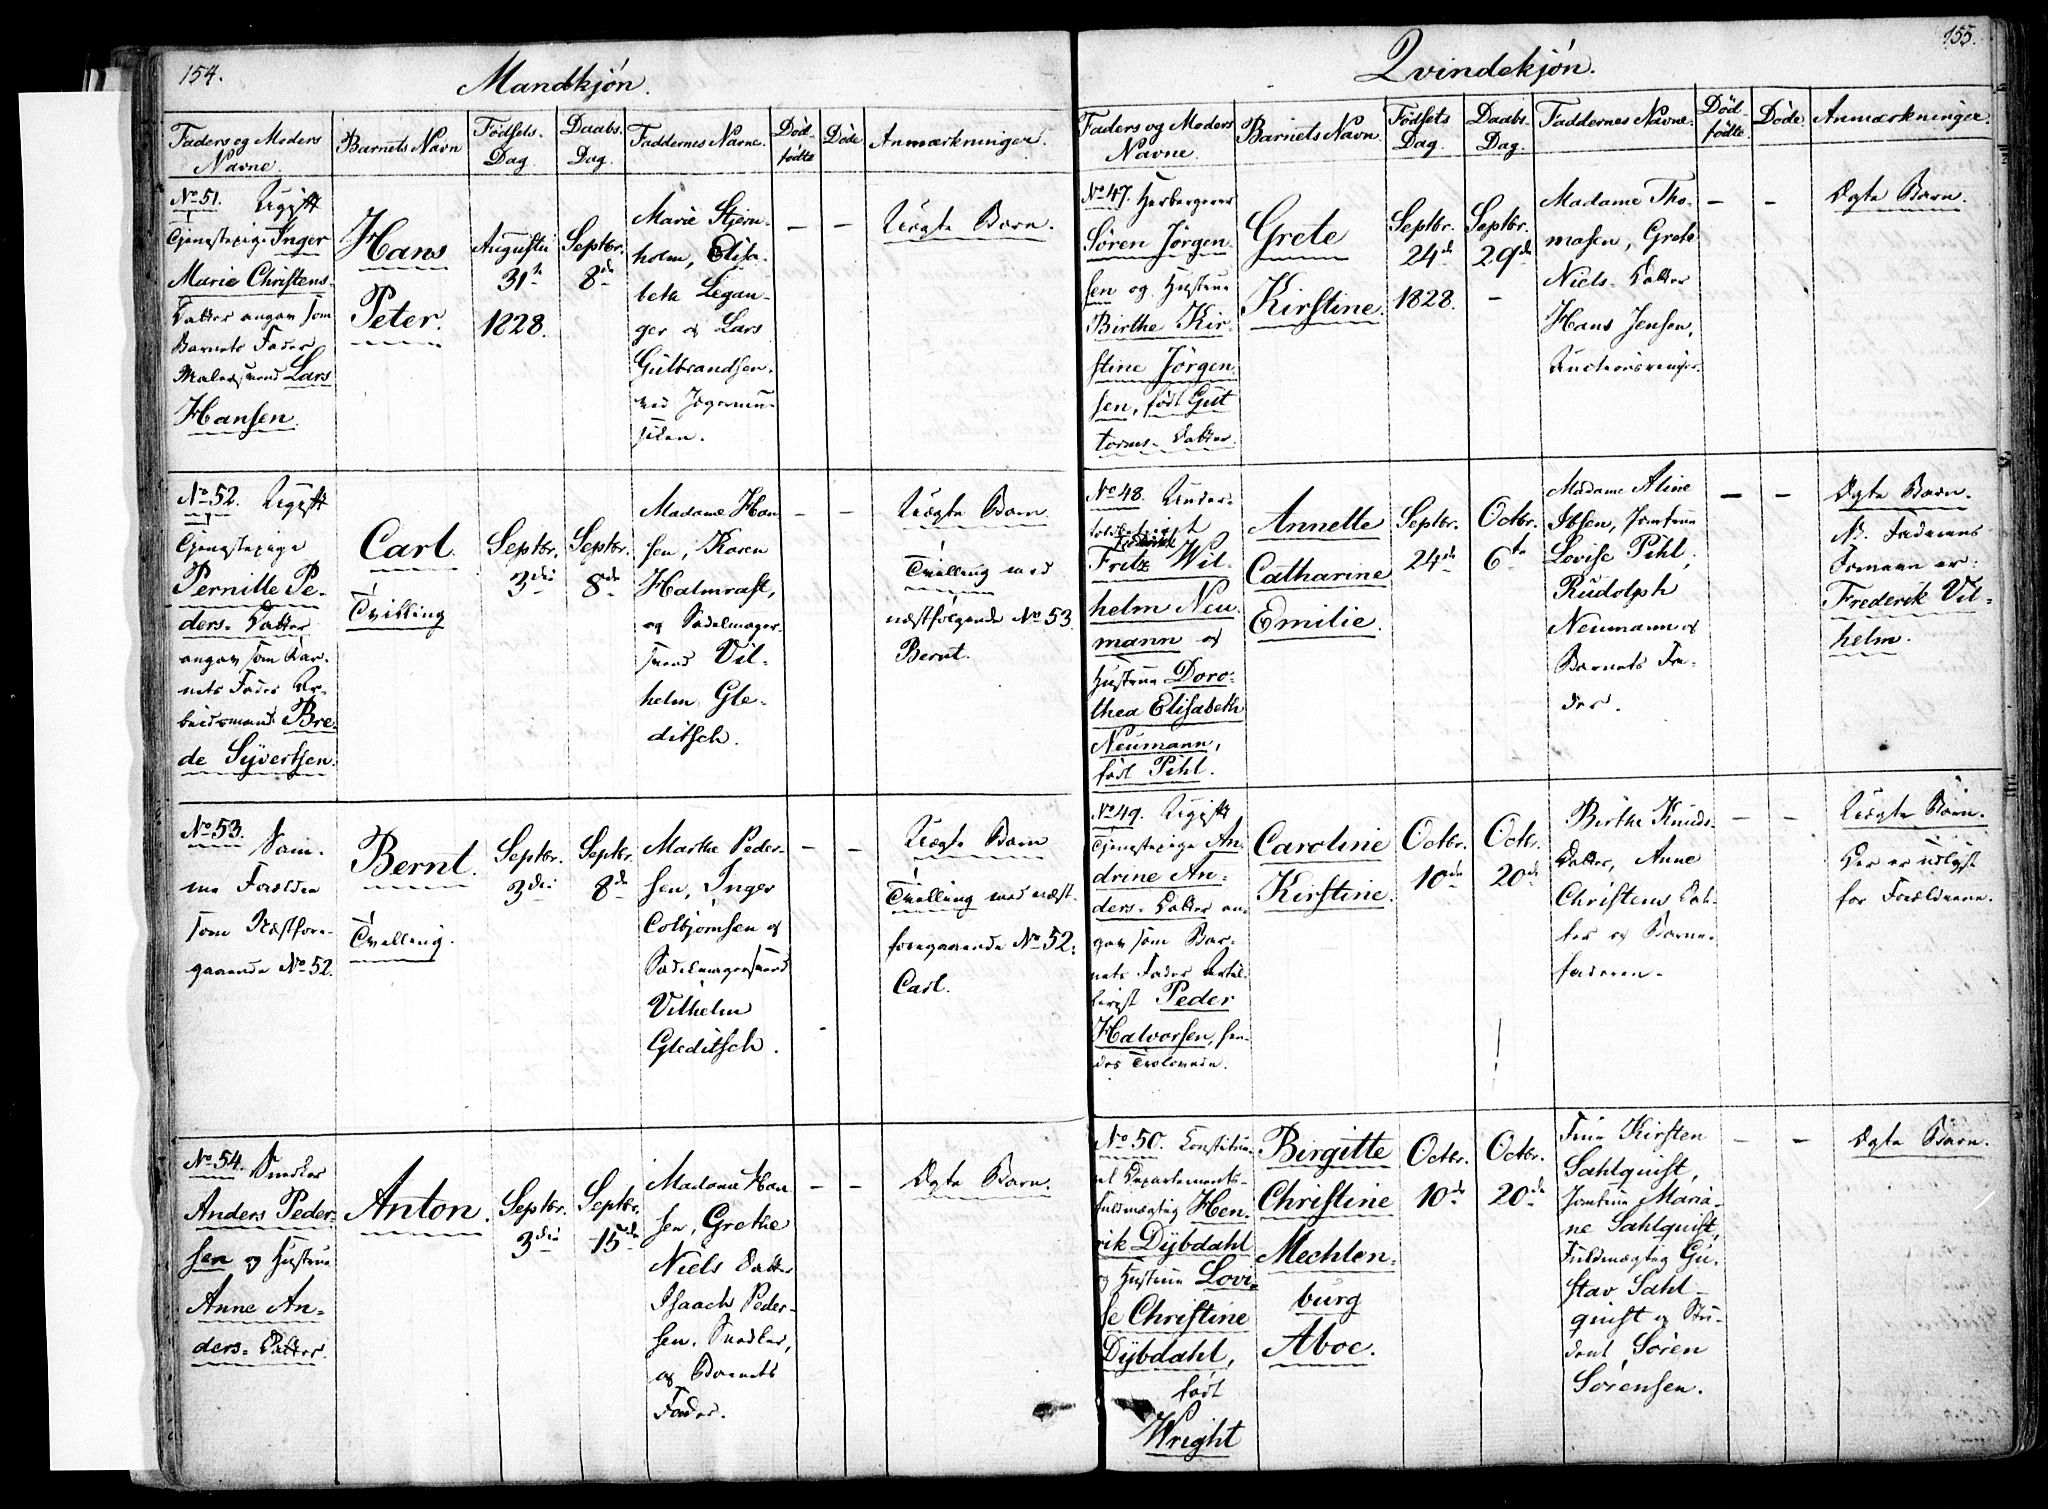 154.
Mandkjön.
Faders og Moders
Navne.
Barnets Navn
Födsels-
Dag.
Daabs-
Dag.
Faddernes Navne.
Död-
födte
Döde
Anmærkninger.
No 51. Ugift
Tjenestepige Inger
Marie Christens-
Datter angav som
Barnets Fader
Malersvend Lars
Hansen.
Hans
Peter.
Augusti
31te
1828.
Septbr.
8de
Marie Stjern-
holm, Elisa-
beth Legan-
ger og Lars
Gulbrandsen.
–
–
Uægte Barn.
No 52. Ugift
Tjenestepige
Pernille Pe-
ders-Datter
angav som Bar-
nets Fader Ar-
beidsmand Bre-
de Syvertsen.
Carl.
Tvilling
Septbr.
3die
Septbr.
8de
Madame Han-
sen, Karen
Halmrast,
og Sadelmager-
svend Vil-
helm Gle-
ditsch.
–
–
Uægte Barn.
Tvilling med
næstfølgende No 53
Bernt.
No 53. Sam-
me Forældre
som Næstfore-
gaaende No 52.
Bernt.
Tvilling.
Septbr.
3die
Septbr.
8de
Marthe Peder-
sen, Inger
Colbjörnsen og
Sadelmagersvend
Vilhelm
Gleditsch.
–
–
Uægte Barn
Tvilling med næst-
foregaaende No 52.
Carl.
No 54. Snedker
Anders Peder-
sen og Hustrue
Anne An-
ders-Datter.
Anton.
Septbr.
3die
Septbr.
15de
Madame Han-
sen, Grethe
Niels Datter
Isaach Peder-
sen, Snedker,
og Barnets
Fader.
–
–
Ægte Barn.
155.
Qvindekjön.
Faders og Moders
Navne.
Barnets Navn.
Födsels
Dag.
Daabs-
Dag.
Faddernes Navne.
Död-
födte
Döde
Anmærkninger.
No 47. Herbergerer
Sören Jörgen-
sen og Hustrue
Birthe Kir-
stine Jörgen-
sen, födt Gut-
torms-Datter.
Grete
Kirstine.
Septbr.
24de
1828.
Septbr.
29de
–
Madame Tho-
masen, Grete
Niels-Datter
Hans Jensen,
–
–
Ægte Barn.
No 48. Under-
Fritz Wil-
helm Neu-
mann og
Hustrue Doro-
thea Elisabeth
Neumann,
födt Pihl.
Annette
Catharine
Emilie.
Septbr.
24de
Octbr.
6te
Madame Aline
Ibsen, Jomfrue
Lovise Pihl,
Rudolph
Neumann og
Barnets Fa-
der.
–
–
Ægte Barn.
N. Faderens
Fornavn er:
Frederik Vil-
helm.
No 49. Ugift
Tjenestepige An-
drine An-
ders-Datter an-
gav som Bar-
nets Fader Artil-
lerist Peder
Halvorsen,
Caroline
Kirstine.
Octbr.
10de
Octbr.
20de
Birthe Knuds-
Datter, Anne
Christens Dat-
ter og Barne-
faderen.
–
–
Uægte Barn.
Der er udlyst
for Forældrene.
No 50. Constitue-
ret Departements-
fuldmægtig Hen-
rik Dybdahl
og Hustrue Lovi-
se Christine
Dybdahl,
födt
Wright
Birgitte
Christine
Mechlen-
burg
Aboe.
Octbr.
10de
Octbr.
20de
Frue Kirsten
Sahlquist,
Jomfrue Maria-
ne Sahlquist,
Fuldmægtig Gu-
stav Sahl-
quist og Stu-
dent Sören
Sörensen.
–
–
Ægte Barn.